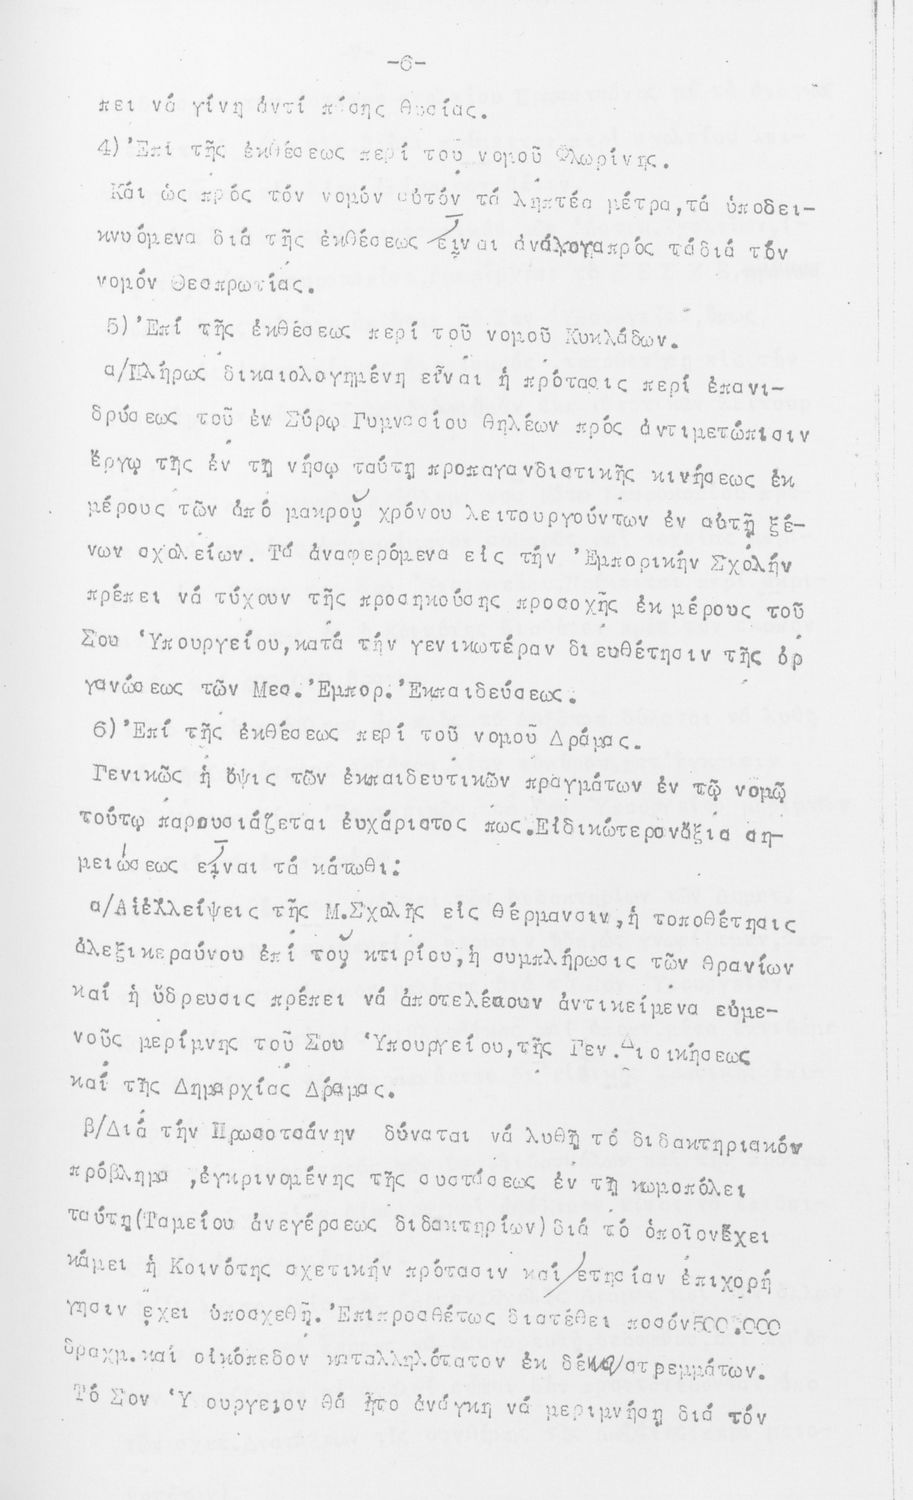 -6-
πει νά γίνη ἀντί πάσης θυσίας.
4) Ἐπί τῆς ἐκθέσεως περί τοῦ νομοῦ Φλωρίνης.
Κάι ὡς πρός τόν νομόν αὐτόν τά ληπτέα μέτρα,τά ὑποδει-
κνυόμενα διά τῆς ἐκθέσεως εἶναι ἀνάλογαπρός τάδιά τόν
νομόν Θεσπρωτίας.
5) Ἐπί τῆς ἐκθέσεως περί τοῦ νομοῦ Κυκλάδων.
α/Πλήρως δικαιολογημένη εἶναι ἡ πρότασις περί ἐπανι-
δρύσεως τοῦ ἐν Σύρῳ Γυμνασίου θηλέων πρός ἀντιμετώπισιν
ἔργῳ τῆς ἐν τῃ νήσῳ ταύτῃ προπαγανδιστικῆς κινήσεως ἐκ
μέρους τῶν ἀπό μακροῦ χρόνου λειτουργούντων ἐν αὐτῇ ξέ-
νων σχολείων. Τά ἀναφερόμενα εἰς τήν Ἐμπορικήν Σχολήν
πρέπει νά τύχουν τῆς προσηκούσης προσοχῆς ἐκ μέρους τοῦ
Σου Ὑπουργείου,κατά τήν γενικωτέραν διευθέτησιν τῆς ὀρ
γανώσεως τῶν Μεσ.Ἐμπορ.Ἐκπαιδεύσεως.
6) Ἐπί τῆς ἐκθέσεως περί τοῦ νομοῦ Δράμας.
Γενικῶς ἡ ὄψις τῶν ἐκπαιδευτικῶν πραγμάτων ἐν τῷ νομῷ
τούτῳ παρουσιάζεται εὐχάριστος πως.Εἰδικώτερονἄξια ση-
μειώσεως εἶναι τά κάτωθι:
α/Αἱἐλλείψεις τῆς Μ.Σχολῆς εἰς θέρμανσιν,ἡ τοποθέτησις
ἀλεξικεραύνου ἐπί τοῦ κτιρίου,ἡ συμπλήρωσις τῶν θρανίων
καί ἡ ὕδρευσις πρέπει νά ἀποτελέσουν ἀντικείμενα εὐμε-
νοῦς μερίμνης τοῦ Σου Ὑπουργείου,τῆς Γεν.Διοικήσεως
καί τῆς Δημαρχίας Δράμας.
β/Διά τήν Προσοτσάνην δύναται νά λυθῇ τό διδακτηριακόν
πρόβλημα ,ἐγκρινομένης τῆς συστάσεως ἐν τῇ κωμοπόλει
ταύτῃ(Ταμείου ἀνεγέρσεως διδακτηρίων)διά τό ὁποῖονἔχει
κάμει ἡ Κοινότης σχετικήν πρότασιν καί/ετησίαν ἐπιχορή
γησιν ἔχει ὑποσχεθῇ.Ἐπιπροσθέτως διατέθει ποσόν500.000
δραχμ.καί οἰκόπεδον καταλληλότατον ἐκ δέκα/στρεμμάτων.
Τό Σον Ὑ ουργειον θά ἦτο ἀνάγκη νά μεριμνήσῃ διά τόν